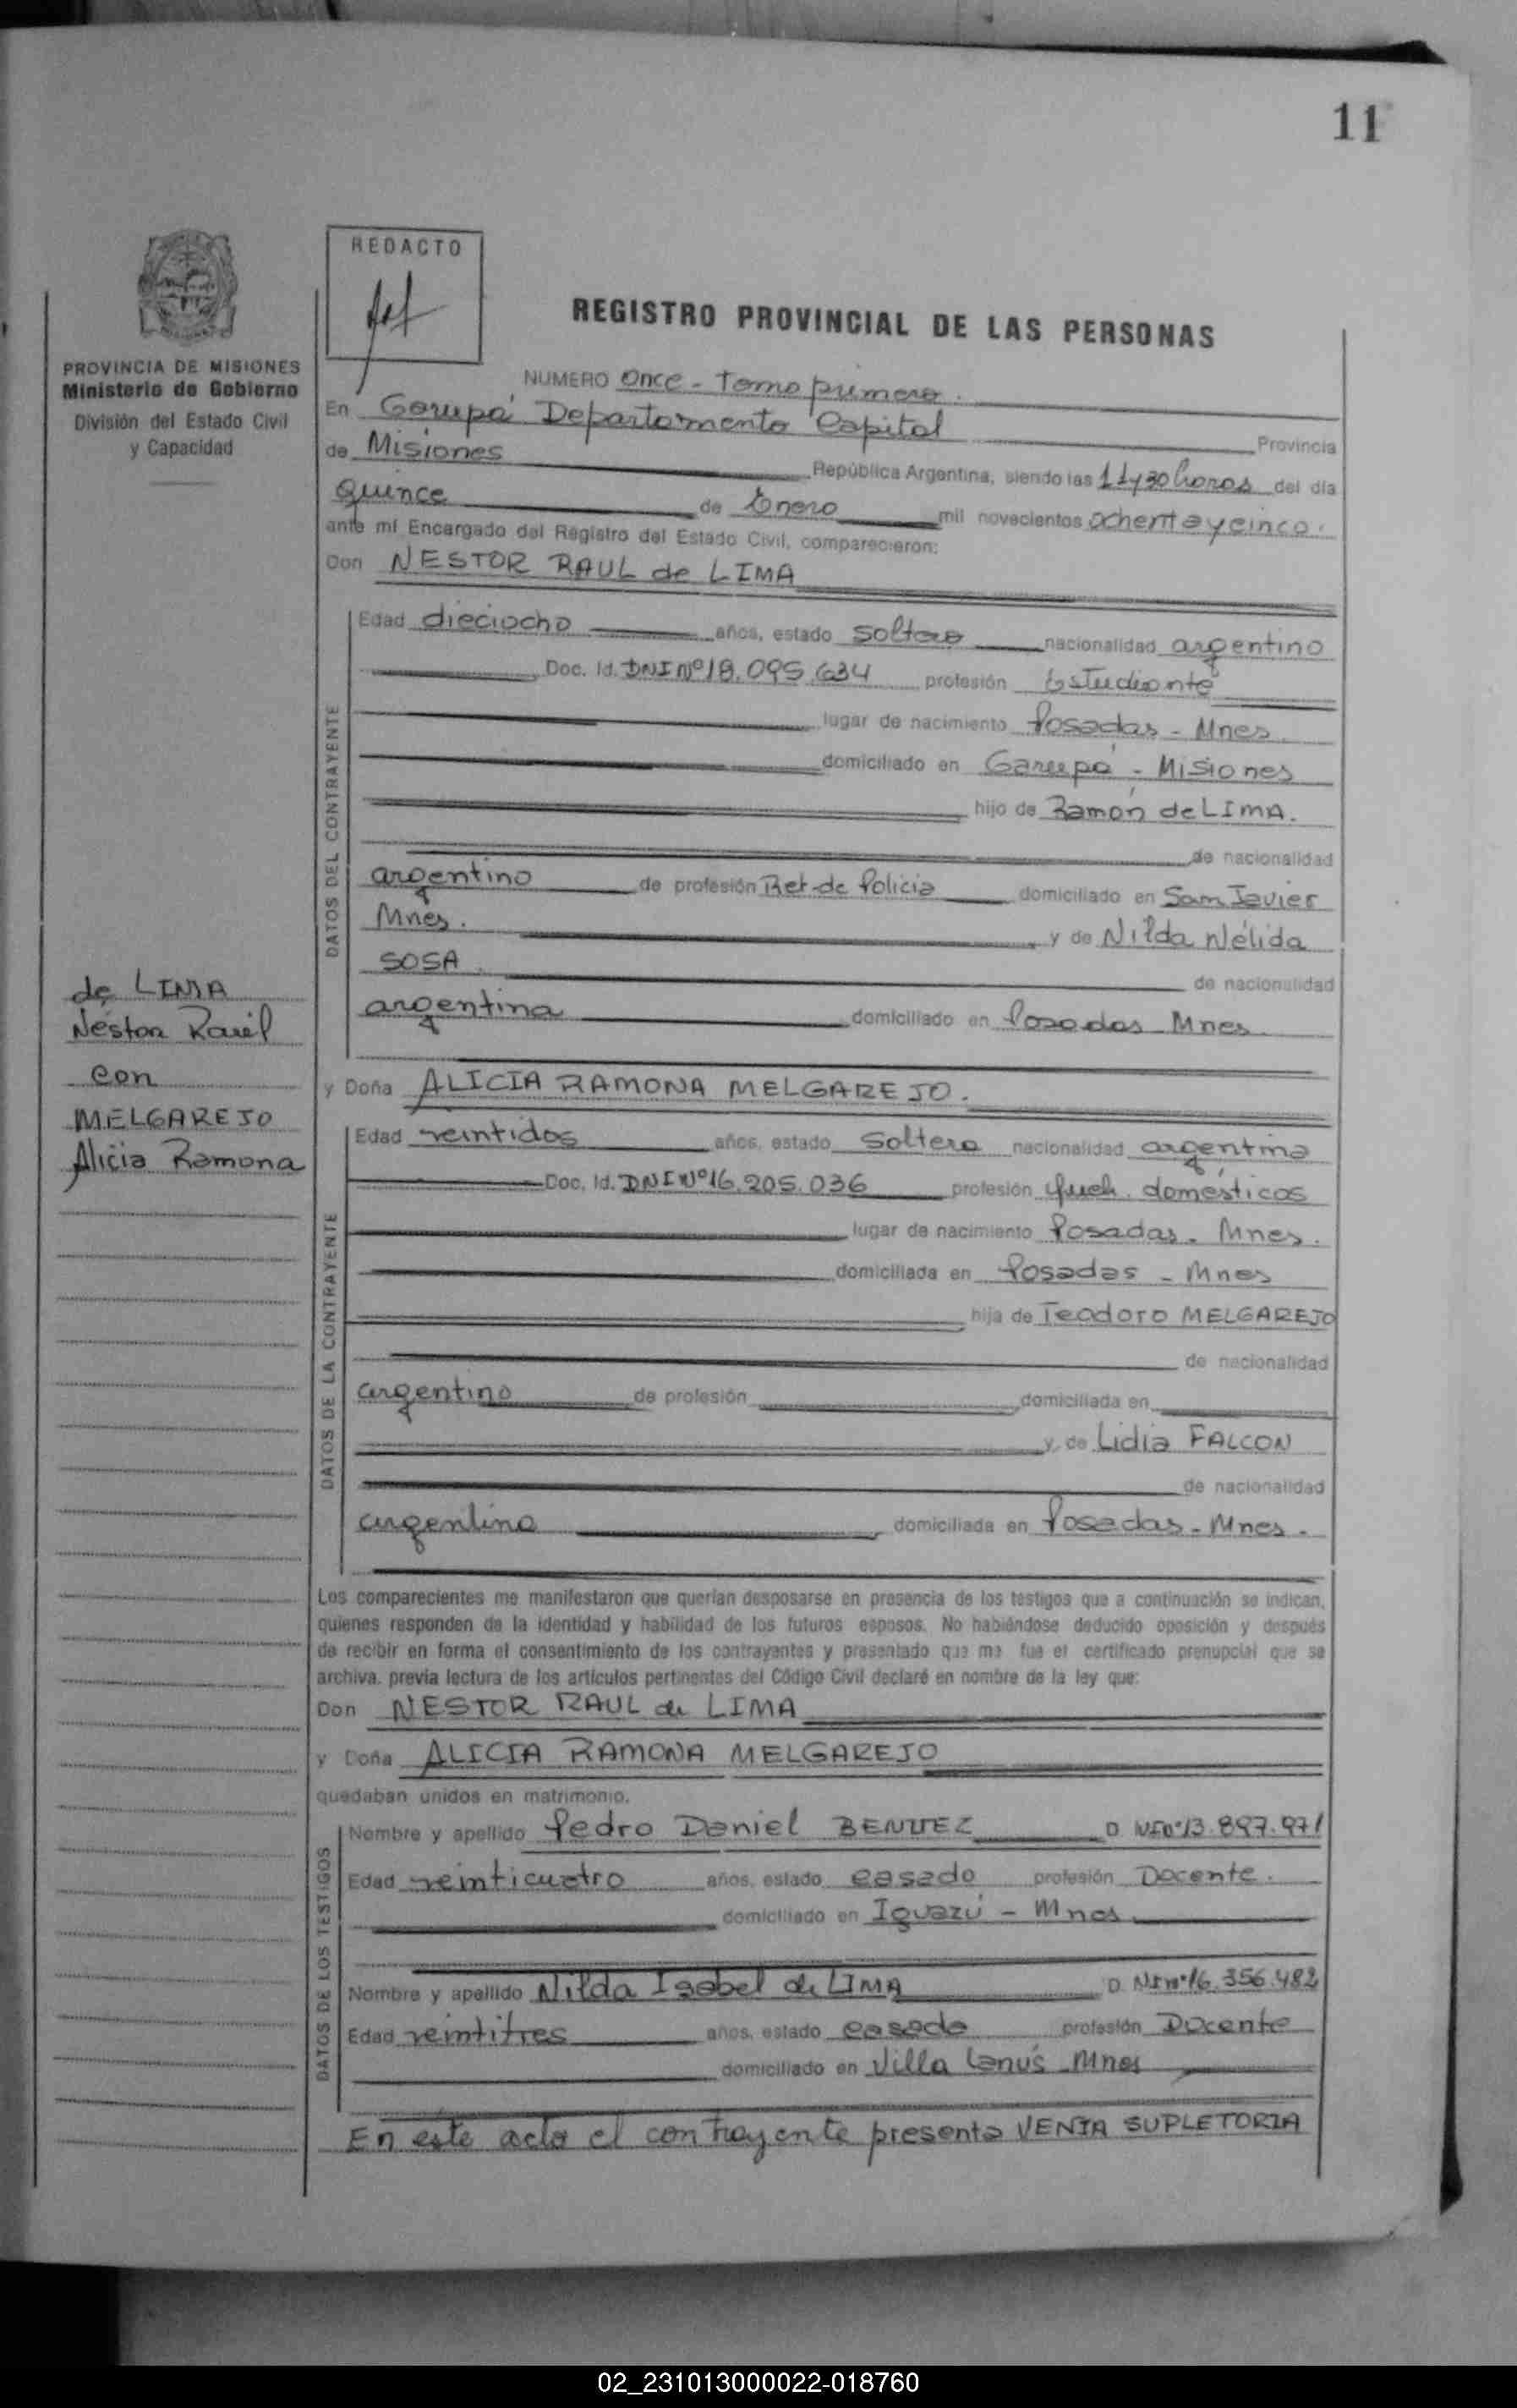 11
REDACTO
REGISTRO PROVINCIAL DE LAS PERSONAS
PROVINCIA DE MISIONES
Ministerio de Gobierno
División del Estado Civil
y Capacidad
NUMERO Once - Tomo primero.
En Garupá Departamento Capital Provincia
de Misiones República Argentina, siendo las 11y30 horas del día
Quince de Enero mil novecientos ochenta y cinco.
ante mí Encargado del Registro del Estado Civil, comparecieron:
Don NESTOR RAUL de LIMA
DATOS DEL CONTRAYENTE
Edad dieciocho años, estado soltero nacionalidad argentino
Doc. Id. DNI Nº 18.095.634 profesión Estudiante
lugar de nacimiento Posadas - Mnes.
domiciliado en Garupá - Misiones
hijo de Ramón de LIMA.
de nacionalidad
argentino de profesión Ret. de Policia domiciliado en San Javier
Mnes. y de Nilda Nélida
SOSA. de nacionalidad
argentina domiciliado en Posadas Mnes
de LIMA
Néstor Raúl
con
MELGAREJO
Alicia Ramona
y Doña ALICIA RAMONA MELGAREJO.
DATOS DE LA CONTRAYENTE
Edad veintidos años, estado soltera nacionalidad argentina
Doc. Id. DNI Nº 16.205.036 profesión domésticos
lugar de nacimiento Posadas. Mnes.
domiciliada en Posadas - Mnes
hija de Teodoro MELGAREJO
de nacionalidad
argentino de profesión domiciliada en
y de Lidia FALCON
de nacionalidad
argentina domiciliada en Posadas - Mnes.
Los comparecientes me manifestaron que querían desposarse en presencia de los testigos que a continuación se indican,
quienes responden de la identidad y habilidad de los futuros esposos. No habiéndose deducido oposición y después
de recibir en forma el consentimiento de los contrayentes y presentado que me fue el certificado prenupcial que se
archiva, previa lectura de los artículos pertinentes del Código Civil declaré en nombre de la ley que:
Don NESTOR RAUL de LIMA
y Doña ALICIA RAMONA MELGAREJO
quedaban unidos en matrimonio.
DATOS DE LOS TESTIGOS
Nombre y apellido Pedro Daniel BENITEZ D NI Nº 13.897.971
Edad veinticuatro años, estado casado profesión Docente.
domiciliado en Iguazú - Mnes.
Nombre y apellido Nilda Isabel de LIMA D NI Nº 16.356.482
Edad veintitres años, estado casada profesión Docente
domiciliado en Villa Lanús Mnes
En este acto el contrayente presenta VENIA SUPLETORIA
02_231013000022-018760